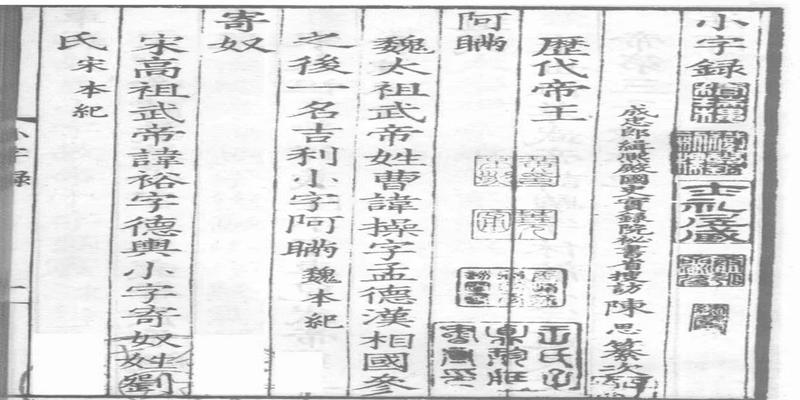 小字録
成忠郎緝熙殿國史實録院秘書省搜訪陳思纂次
歷代帝王
阿瞞
魏太祖武帝姓曹諱操字孟德漢相國參
之後一名吉利小字阿瞞魏本紀
寄奴
宋高祖武帝諱裕字德輿小字寄奴姓劉
氏宋本紀
小字録